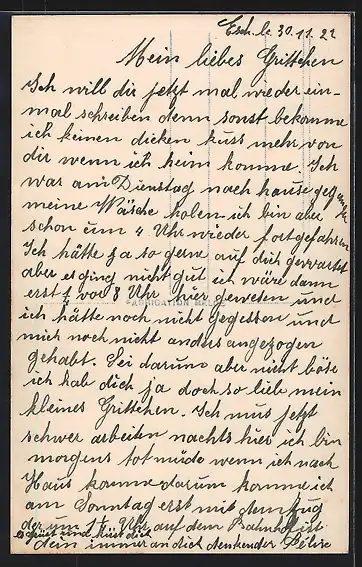 Esch. le. 30.11.22
Mein liebes Grittchen
Ich will dir jetzt mal wieder ein-
mal schreiben denn sonst bekomme
ich keinen dicken kuss mehr von
dir wenn ich heim komme. Ich
war am Dienstag nach hause gegangen
meine Wäsche holen ich bin aber
schon um 4 Uhr wieder fortgefahren
Ich hätte ja so gerne auf dich gewartet
aber es ging nicht gut ich wäre dann
erst vor 8 Uhr hier gewesen und
FABRICATION BELGE
ich hätte noch nicht gegessen und
mich noch nicht anders angezogen
gehabt. Sei darum aber nicht böse
ich hab dich ja doch so lieb mein
kleines Grittchen. Ich mus jetzt
schwer arbeiten nachts hier ich bin
morgens tot müde wenn ich nach
Haus komme darum komme ich
am Sonntag erst mit dem zug
der um Uhr auf dem Bahnhof ist
es grüst und küst dich
dein immer an dich denkender